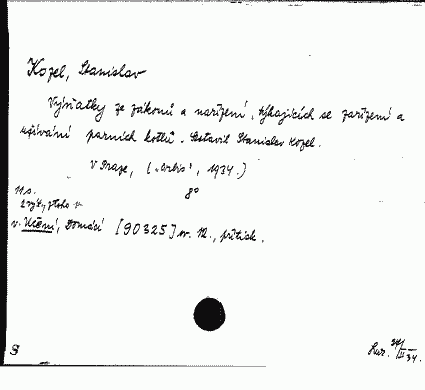 Kozel, Stanislav
Výňatky ze zákonů a nařízení, týkajících se zařízení a
užívání parních kotlů. Sestavil Stanislav Kozel.
V Praze, („Orbis“, 1934.)
8°
11 s.
v. Učení, Domácí [90325] sv. 12., přítisk.
S
III 34.